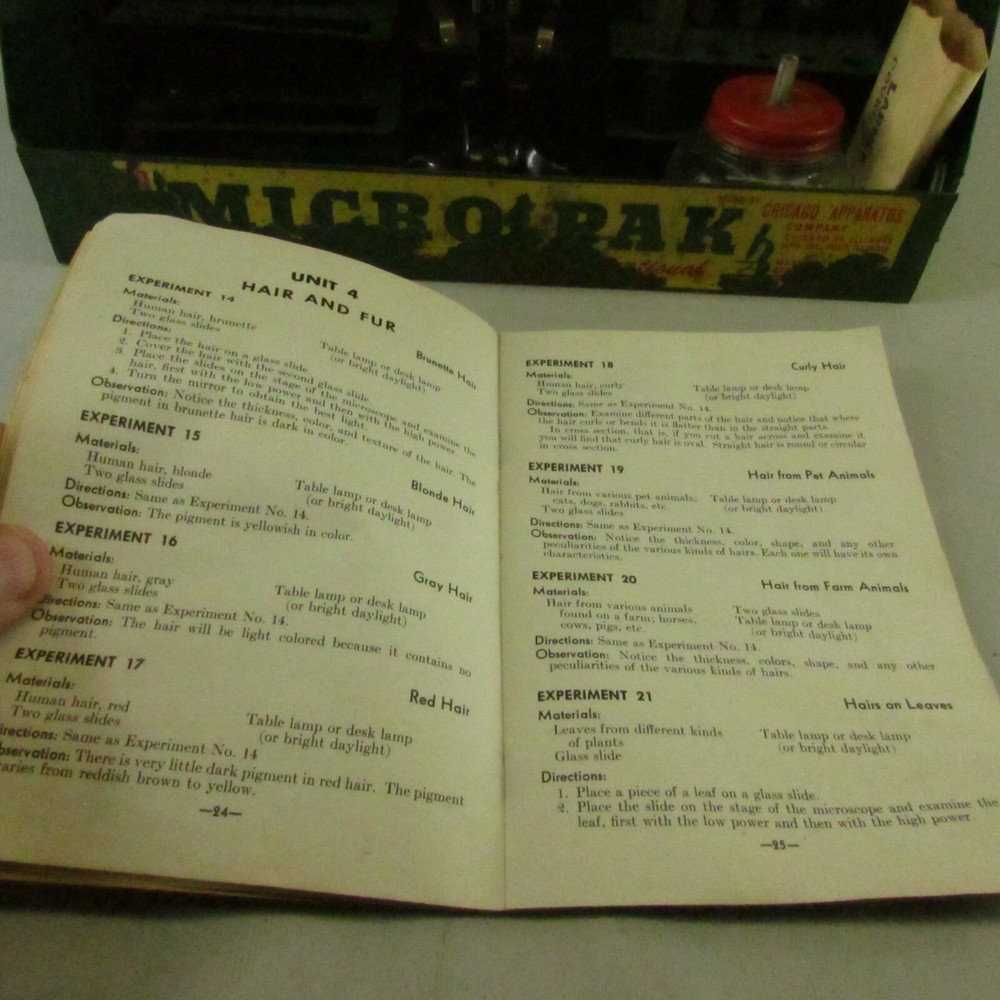 MICRO PAK
CHICAGO APPARATUS
COMPANY
UNIT 4
HAIR AND FUR
EXPERIMENT 14
Brunette Hair
Materials:
Human hair, brunette
Two glass slides
Table lamp or desk lamp
(or bright daylight)
Directions:
1. Place the hair on a glass slide.
2. Cover the hair with the second glass slide.
3. Place the slides on the stage of the microscope and examine the
hair, first with the low power and then with the high power.
4. Turn the mirror to obtain the best light.
Observation: Notice the thickness, color, and texture of the hair. The
pigment in brunette hair is dark in color.
EXPERIMENT 15
Blonde Hair
Materials:
Human hair, blonde
Two glass slides
Table lamp or desk lamp
(or bright daylight)
Directions: Same as Experiment No. 14.
Observation: The pigment is yellowish in color.
EXPERIMENT 16
Gray Hair
Materials:
Human hair, gray
Two glass slides
Table lamp or desk lamp
(or bright daylight)
Directions: Same as Experiment No. 14.
Observation: The hair will be light colored because it contains no
pigment.
EXPERIMENT 17
Red Hair
Materials:
Human hair, red
Two glass slides
Table lamp or desk lamp
(or bright daylight)
irections: Same as Experiment No. 14
bservation: There is very little dark pigment in red hair. The pigment
aries from reddish brown to yellow.
—24—
EXPERIMENT 18
Curly Hair
Materials:
Human hair, curly
Two glass slides
Table lamp or desk lamp
(or bright daylight)
Directions: Same as Experiment No. 14.
Observation: Examine different parts of the hair and notice that where
the hair curls or bends it is flatter than in the straight parts.
In cross section, that is, if you cut a hair across and examine it
you will find that curly hair is oval. Straight hair is round or circular
in cross section.
EXPERIMENT 19
Hair from Pet Animals
Materials:
Hair from various pet animals;
cats, dogs, rabbits, etc.
Two glass slides
Table lamp or desk lamp
(or bright daylight)
Directions: Same as Experiment No. 14.
Observation: Notice the thickness, color, shape, and any other
peculiarities of the various kinds of hairs. Each one will have its own
characteristics.
EXPERIMENT 20
Hair from Farm Animals
Materials:
Hair from various animals
found on a farm; horses,
cows, pigs, etc.
Two glass slides
Table lamp or desk lamp
(or bright daylight)
Directions: Same as Experiment No. 14.
Observation: Notice the thickness, colors, shape, and any other
peculiarities of the various kinds of hairs.
EXPERIMENT 21
Hairs on Leaves
Materials:
Leaves from different kinds
of plants
Glass slide
Table lamp or desk lamp
(or bright daylight)
Directions:
1. Place a piece of a leaf on a glass slide.
2. Place the slide on the stage of the microscope and examine the
leaf, first with the low power and then with the high power.
—25—